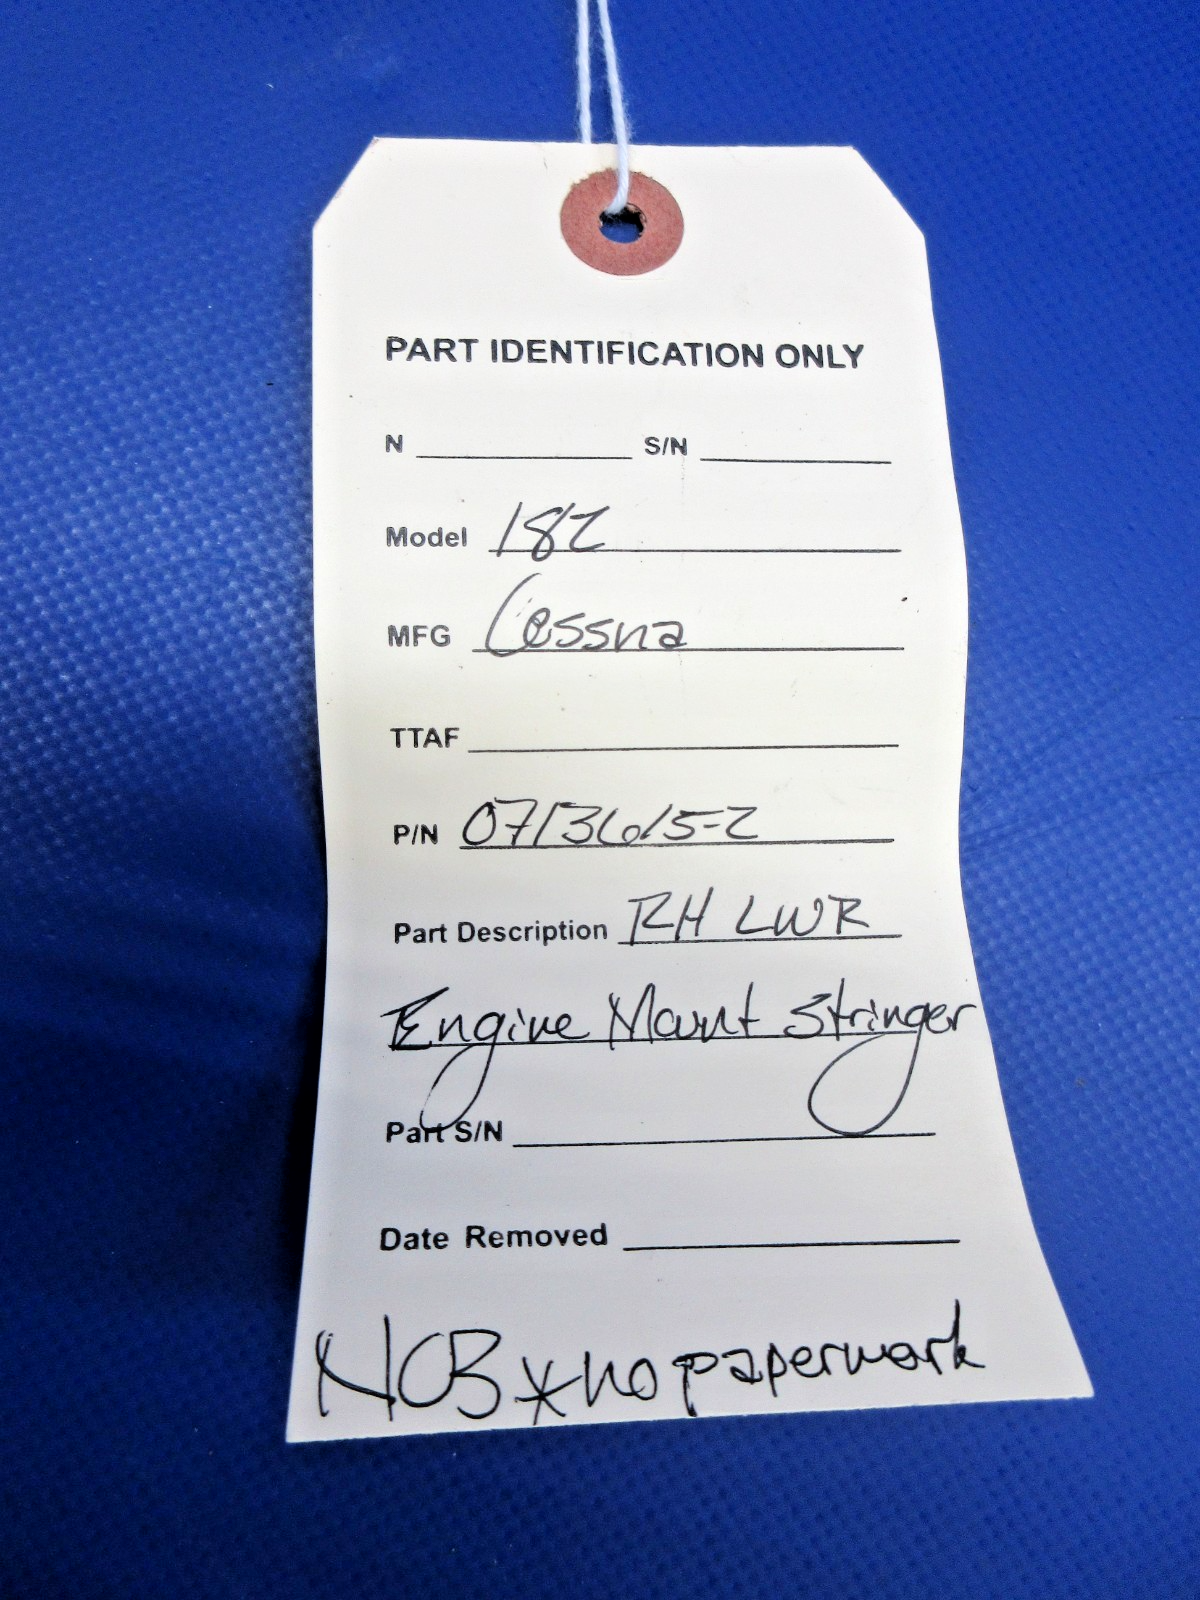 PART IDENTIFICATION ONLY
N S/N
Model 182
MFG Cessna
TTAF
P/N 0713615-2
Part Description RH LWR
Engine Mount Stringer
Part S/N
Date Removed
NOB * no paperwork